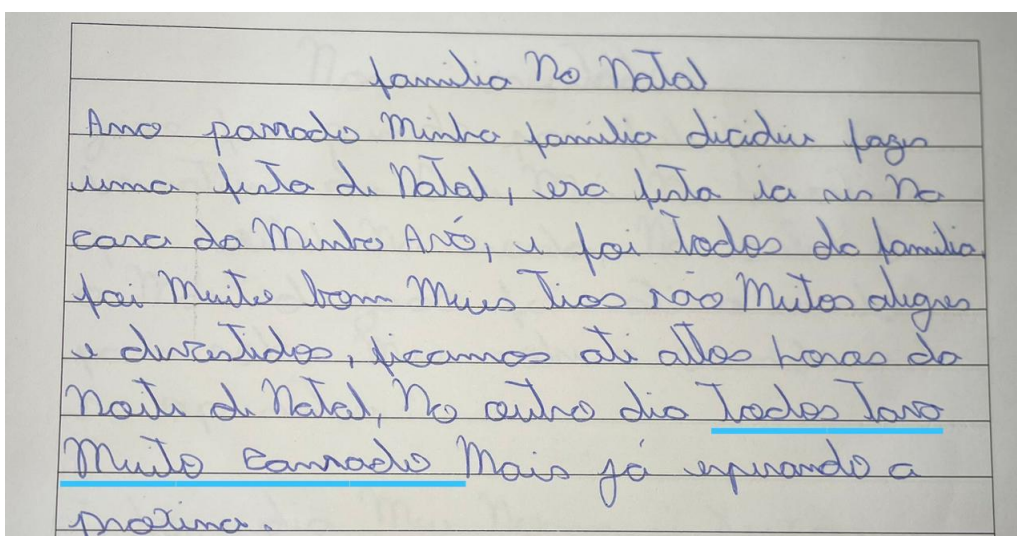 familia no natal
Ano passado minha familia dicidiu fazer
uma festa de natal, essa festa ia ser na
casa da minha Avó, e foi todos da familia,
foi muito bom meus tios são muitos alegres
e divertidos, ficamos até altas horas da
noite de natal, no outro dia todos tava
muito cansado mais já esperando a
proxima.